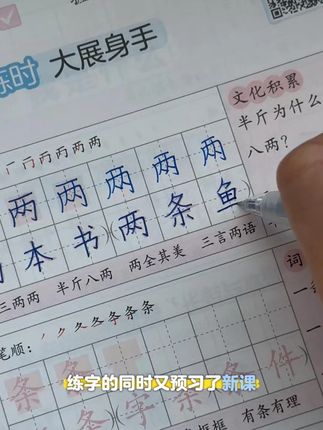 练时 大展身手
文化积累
半斤为什么
八两？
两 两 两 两 两
本 书 两 条 鱼
三两两 半斤八两 两全其美 三言两语
词
笔顺：
条 条 字 条 条 件
练字的同时又预习了新课
有条有理